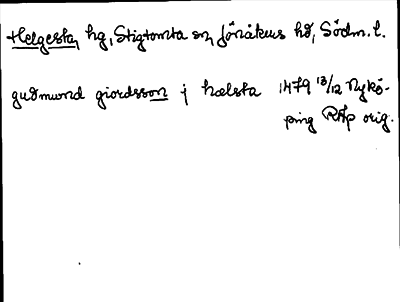 Helgesta, hg, Stigtomta sn, Jönåkers hd, Södm. l.
guðmund giordsson j hælsta 1479 13/12 Nykö-
ping RAp orig.